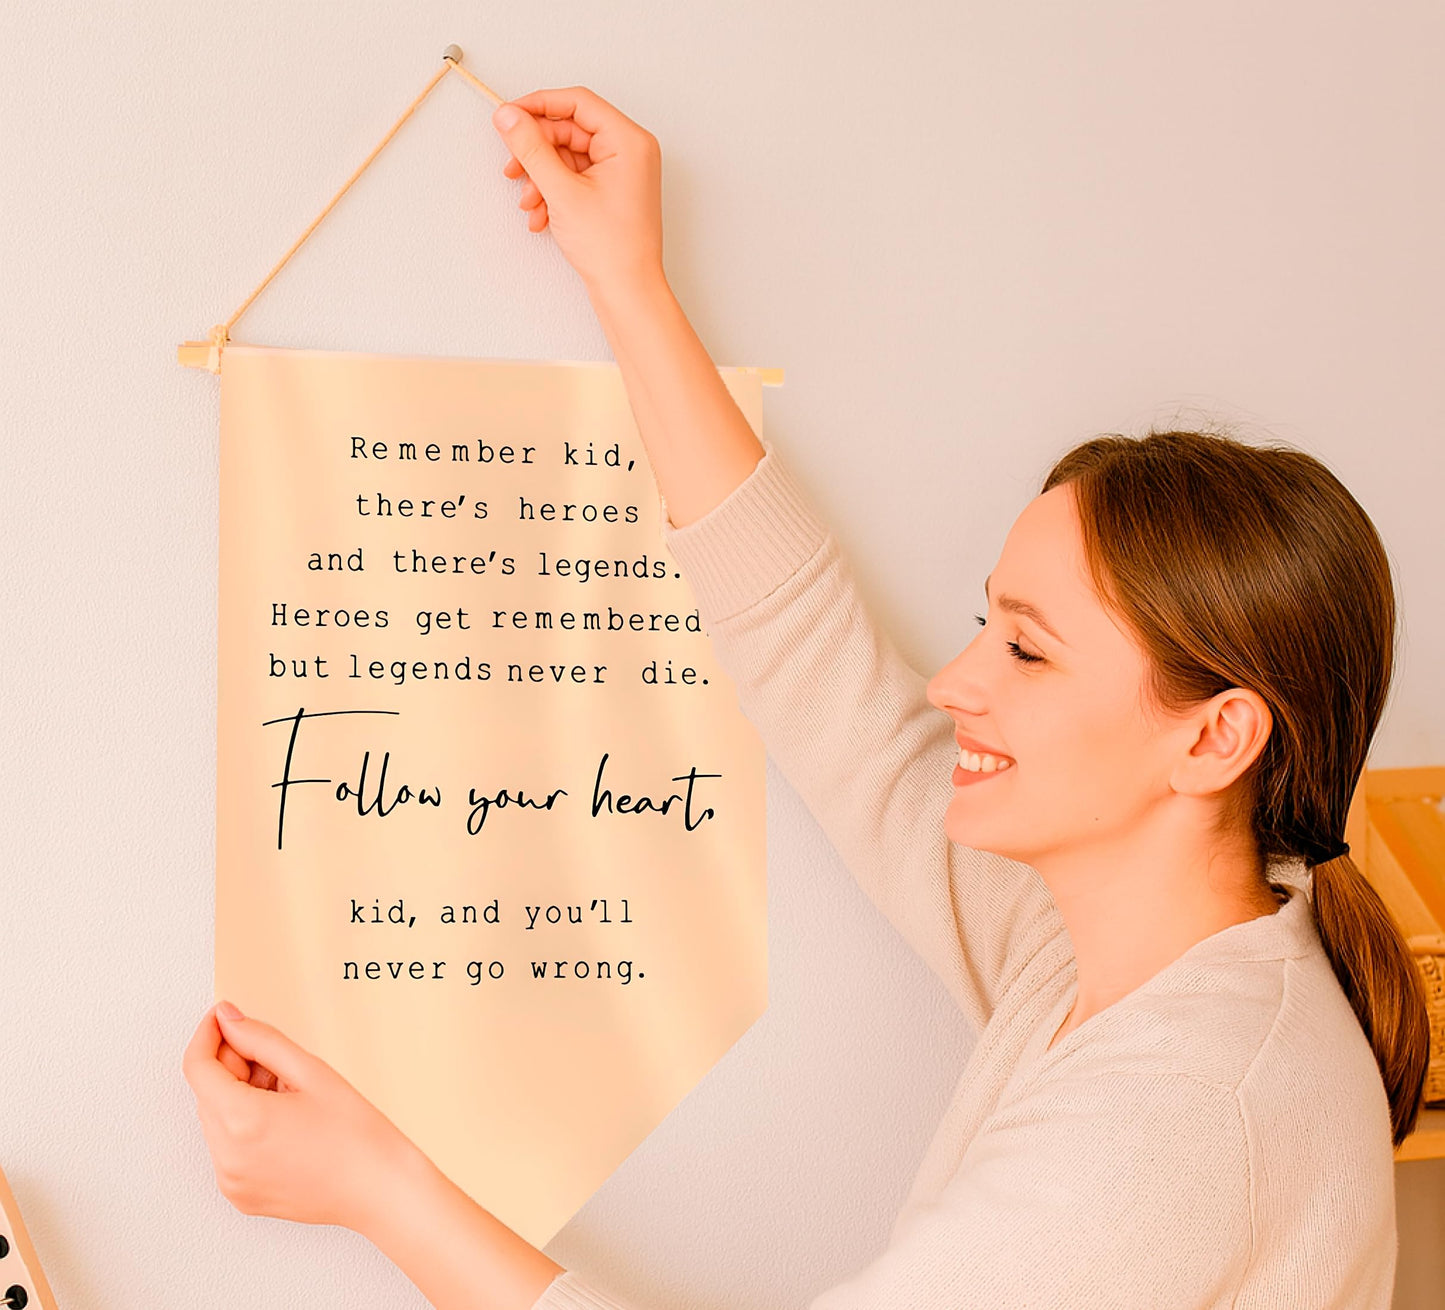 Remember kid,
there's heroes
and there's legends.
Heroes get remembered,
but legends never die.
Follow your heart,
kid, and you'll
never go wrong.